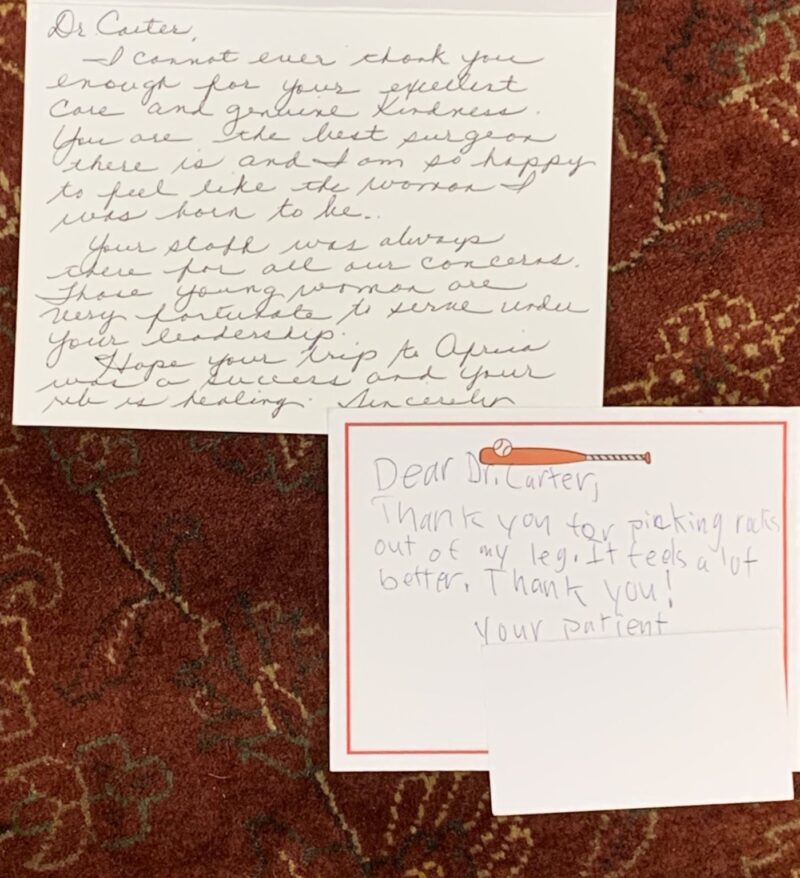 Dr Carter,
I cannot ever thank you
enough for your excellent
care and genuine kindness.
You are the best surgeon
there is and I am so happy
to feel like the woman I
was born to be..
Your staff was always
there for all our concerns.
Those young woman are
very fortunate to serve under
your leadership.
Hope your trip to Africa
was a success and your
rib is healing. Sincerely
Dear Dr. Carter,
Thank you for picking rocks
out of my leg. It feels a lot
better. Thank you!
Your patient